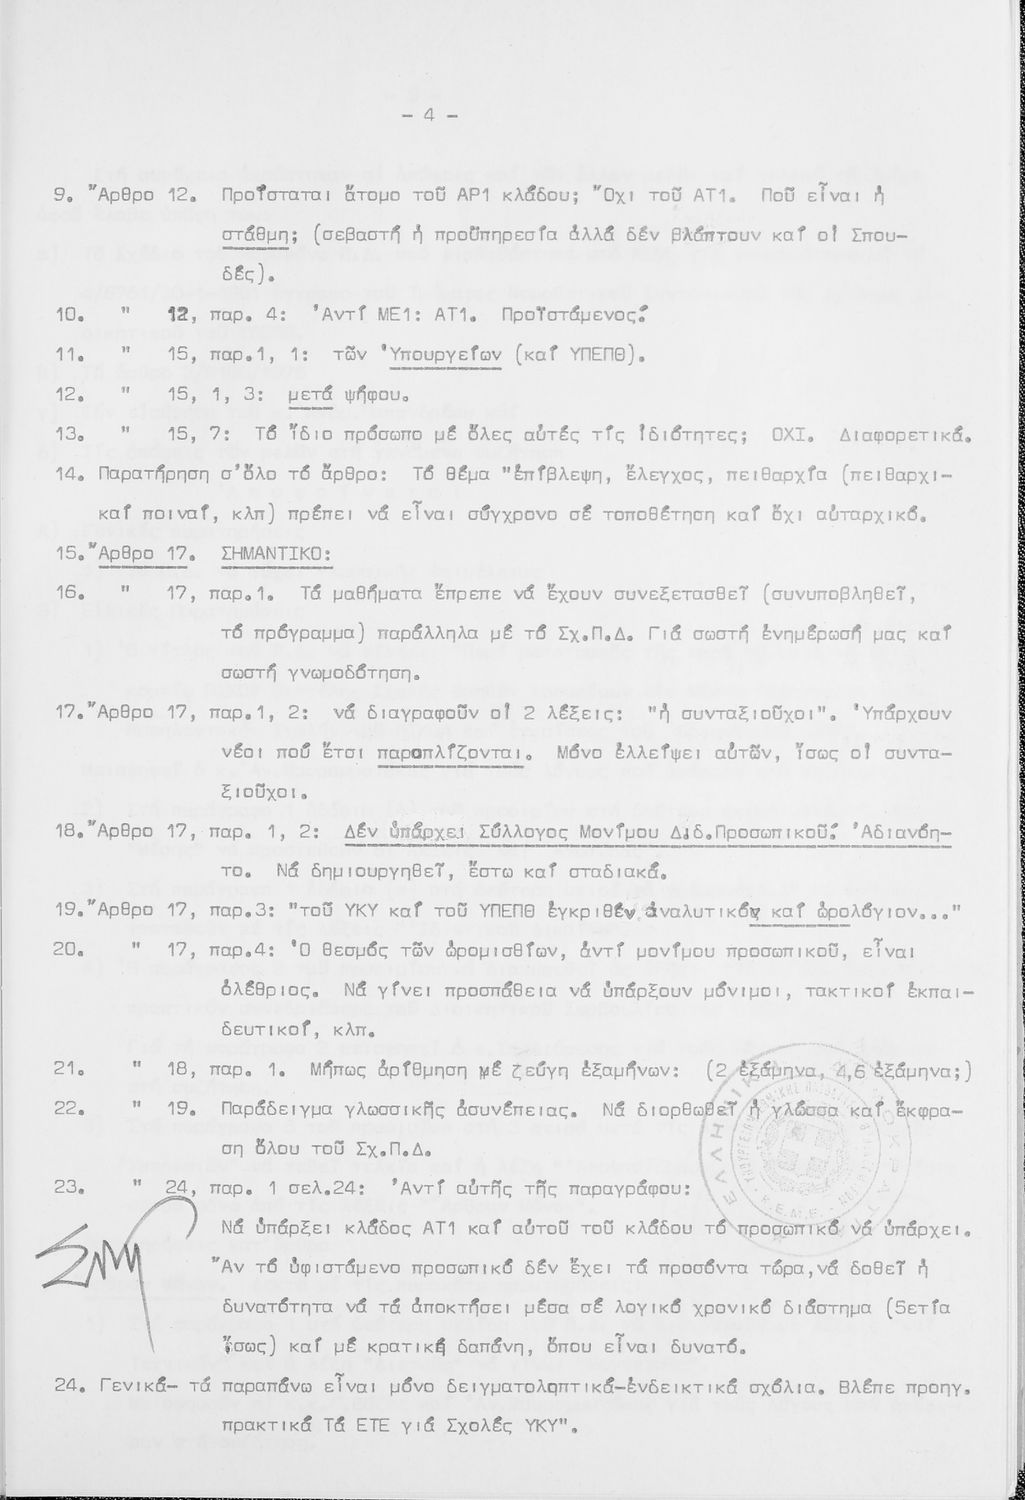 - 4 -
9. Ἄρθρο 12. Προΐσταται ἄτομο τοῦ ΑΡ1 κλάδου; Ὄχι τοῦ ΑΤ1. Ποῦ εἶναι ἡ
στάθμη; (σεβαστή ἡ προϋπηρεσία ἀλλά δέν βλάπτουν καί οἱ Σπου-
δές).
10. " 12, παρ. 4: Ἀντί ΜΕ1: ΑΤ1. Προϊστάμενος!
11. " 15, παρ.1, 1: τῶν Ὑπουργείων (καί ΥΠΕΠΘ).
12. " 15, 1, 3: μετά ψήφου.
13. " 15, 7: Τό ἴδιο πρόσωπο μέ ὅλες αὐτές τίς ἰδιότητες; ΟΧΙ. Διαφορετικά.
14. Παρατήρηση σ'ὅλο τό ἄρθρο: Τό θέμα "ἐπίβλεψη, ἔλεγχος, πειθαρχία (πειθαρχι-
καί ποιναί, κλπ) πρέπει νά εἶναι σύγχρονο σέ τοποθέτηση καί ὄχι αὐταρχικό.
15. Ἄρθρο 17. ΣΗΜΑΝΤΙΚΟ:
16. " 17, παρ.1. Τά μαθήματα ἔπρεπε νά ἔχουν συνεξετασθεῖ (συνυποβληθεῖ,
τό πρόγραμμα) παράλληλα μέ τό Σχ.Π.Δ. Γιά σωστή ἐνημέρωσή μας καί
σωστή γνωμοδότηση.
17. Ἄρθρο 17, παρ.1, 2: νά διαγραφοῦν οἱ 2 λέξεις: "ἤ συνταξιοῦχοι". Ὑπάρχουν
νέοι πού ἔτσι παροπλίζονται. Μόνο ἐλλείψει αὐτῶν, ἴσως οἱ συντα-
ξιοῦχοι.
18. Ἄρθρο 17, παρ. 1, 2: Δέν ὑπάρχει Σύλλογος Μονίμου Διδ.Προσωπικοῦ! Ἀδιανόη-
το. Νά δημιουργηθεῖ, ἔστω καί σταδιακά.
19. Ἄρθρο 17, παρ.3: "τοῦ ΥΚΥ καί τοῦ ΥΠΕΠΘ ἐγκριθέν ἀναλυτικόν καί ὡρολόγιον..."
20. " 17, παρ.4: Ὁ θεσμός τῶν ὡρομισθίων, ἀντί μονίμου προσωπικοῦ, εἶναι
ὀλέθριος. Νά γίνει προσπάθεια νά ὑπάρξουν μόνιμοι, τακτικοί ἐκπαι-
δευτικοί, κλπ.
21. " 18, παρ. 1. Μήπως ἀρίθμηση μέ ζεύγη ἑξαμήνων: (2 ἑξάμηνα, 4,6 ἑξάμηνα;)
22. " 19. Παράδειγμα γλωσσικῆς ἀσυνέπειας. Νά διορθωθεῖ ἡ γλώσσα καί ἔκφρα-
ση ὅλου τοῦ Σχ.Π.Δ.
23. " 24, παρ. 1 σελ.24: Ἀντί αὐτῆς τῆς παραγράφου:
Νά ὑπάρξει κλάδος ΑΤ1 καί αὐτοῦ τοῦ κλάδου τό προσωπικό νά ὑπάρχει.
Ἄν τό ὑφιστάμενο προσωπικό δέν ἔχει τά προσόντα τώρα,νά δοθεῖ ἡ
δυνατότητα νά τά ἀποκτήσει μέσα σέ λογικό χρονικό διάστημα (5ετία
ἴσως) καί μέ κρατική δαπάνη, ὅπου εἶναι δυνατό.
24. Γενικά- τά παραπάνω εἶναι μόνο δειγματοληπτικά-ἐνδεικτικά σχόλια. Βλέπε προηγ.
πρακτικά Τά ΕΤΕ γιά Σχολές ΥΚΥ".